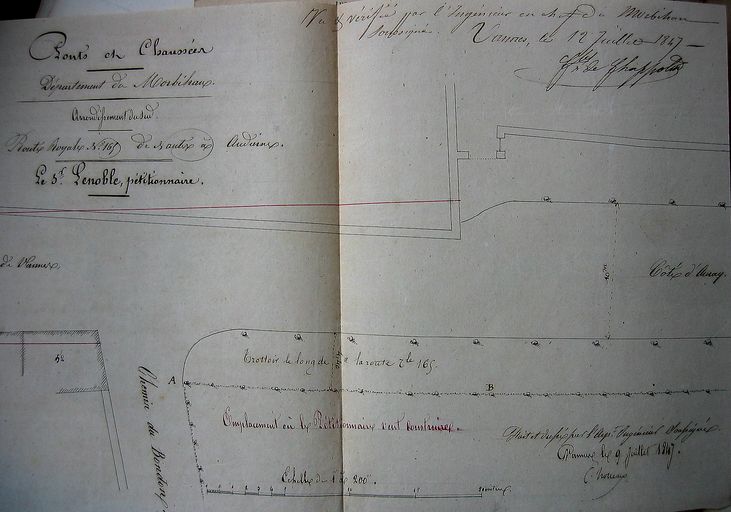 Vu & vérifié par l'Ingénieur en chef du Morbihan
soussigné. Vannes, le 12 Juillet 1847
Ponts et Chaussées
Département du Morbihan.
Arrondissement du sud.
Route Royale No. 165 de Nantes à Audierne.
Le Sr. Lenoble, pétitionnaire.
de Vannes
Côté d'Auray.
Trottoir le long de la route Rle 165.
A
B
Chemin du Bondon
Emplacement où le Pétitionnaire veut construire.
Echelle de 1 à 200
Vannes le 9 juillet 1847.